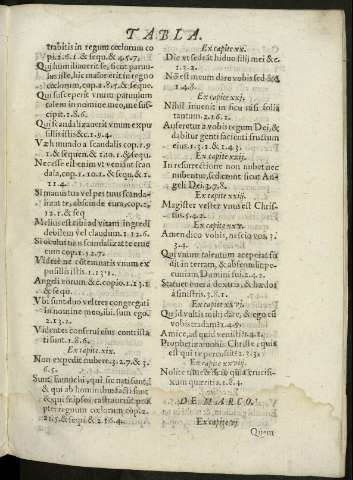 TABLA.
trabitis in regum cœlorum co
pi. 2.6.1. & sequ. & 4.5.7.
Qui humiliauerit se, sicut paruu-
lus iste, hic maior erit in regno
cœlorum, cop. 1.8.4. & seque.
Qui susceperit vnum paruulum
talem in nomine meo, me sus-
cipit. 1.8.6.
Qui scandalizauerit vnum ex pu
sillis istis & c. 1.9.4.
Væ h mundo a scandalis cop. 1.9
1. & sequen, & 1.10.1. & sequ.
Necesse est enim vt veniant scan
dala, cop. 1.10.1. & sequ. & 1.
Si manus tua vel pes tuus scanda-
lizat te, abscinde eum, cop. 2.
12.1. & seq
Melius est tibi ad vitam ingredi
debilem vel claudum. 1.12.6.
Si oculus tuus scandalizat te erue
eum cop. 1.32.7.
Videte ne contemnatis vnum ex
pusillis istis
Angeli eorum & c. copio. 1.13.1
& sequ.
Vbi sunt duo vel tres congregati
in nomine meo, ibi sum ego.
2.13.1.
Videntes conserui eius contrista
ti sunt. 1.8.6.
Ex capite. xix.
Non expedit nubere. 3.2.7. & 3.
6.5.
Sunt eunuchi, qui sic nati sunt,
& qui ab hominibus facti sunt
& qui se ipsos castrauerunt pro
pter regnum cœlorum cop. 2.
21.5. & sequ. & 2.16.4.
Ex capite xx.
Dixit vt sedeat hi duo filij mei & c.
1.2.2.
Nō est meum dare vobis sed & c
1.4.8.
Ex capite xxj.
Nihil inuenit in ficu nisi folia
tantum. 2.16.2.
Auferetur a vobis regum Dei, &
dabitur genti facienti fructum
eius. 1.3.1. & 1.4.3.
Ex capite xxij.
In resurrectione non nubet nec
nubentur, sed erunt sicut An-
geli Dei. 3.7.8.
Ex capite xxiij.
Magister vester vnus est Chris-
tus. 5.4.2.
Ex capite xxv.
Amen dico vobis, nescio vos. 3.
3.4.
Qui vnum talentum acceperat fo
dit in terram, & abscondit pe-
cuniam Domini sui. 2.4.2.
Statuet oues a dextris, & hædos
a sinistris. 3.8.1.
Ex capite xxvj.
Quid vultis mihi dare, & ego eū
vobis tradam? 2.4.9.
Amice, ad quid venisti? 1.4.1.
Prophetiza nobis Christe, quis
est qui te percussit? 2.3.3.
Ex capite xxviij.
Nolite timere scio quia crucifi-
xum quæritis. 1.8.4.
DE MARCO.
Ex capite vj
Quem